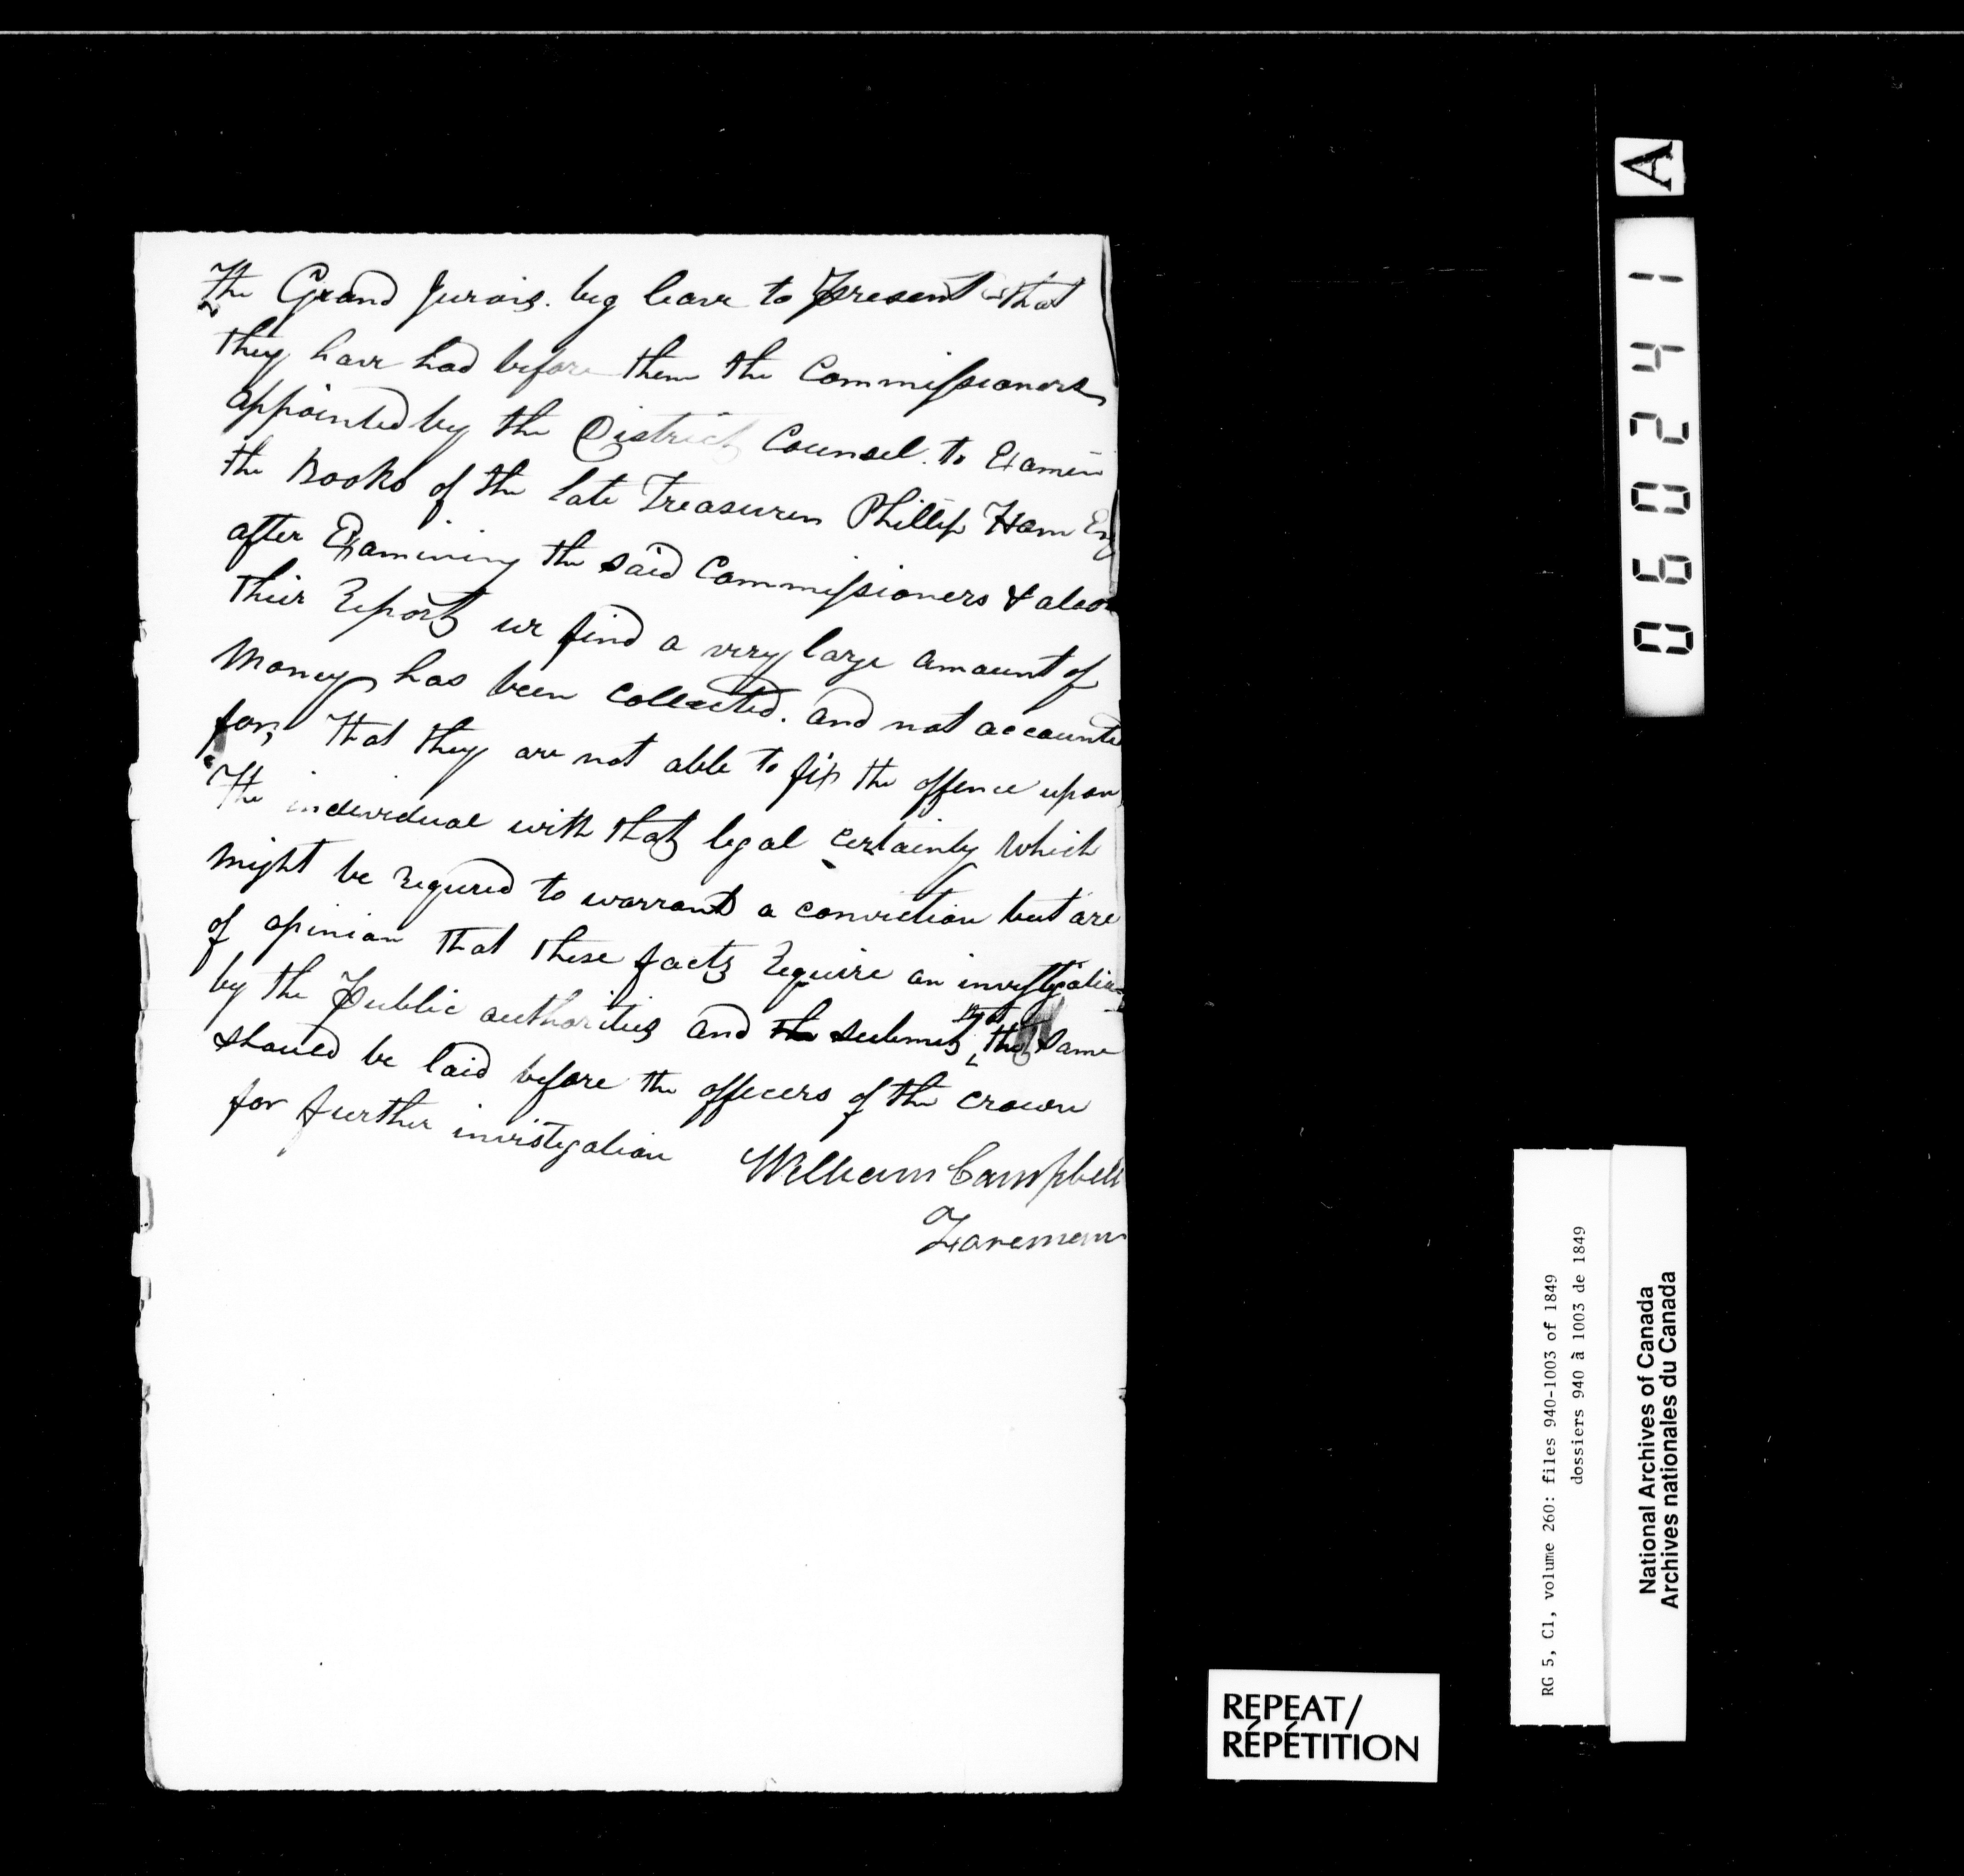 The Grand Jurors. beg leave to present that
they have had before them the Commissioners
appointed by the District Counsel. to Examin
the Books of the late Treasurer Phillip Ham Esq
after Examining the said Commissioners & also
their Report we find a very large amount of
Money has been collected. and not accounted
for; that they are not able to fix the offence upon
the individual with that legal certainty which
might be requred to warrant a conviction but are
of opinion that these facts require an investigation
by the Public authorities and the submit that the same
should be laid before the officers of the crown
for further investigation
William Campbell
Foreman
A
060241
RG 5, C1, volume 260: files 940-1003 of 1849
dossiers 940 à 1003 de 1849
National Archives of Canada
Archives nationales du Canada
REPEAT/
RÉPÉTITION